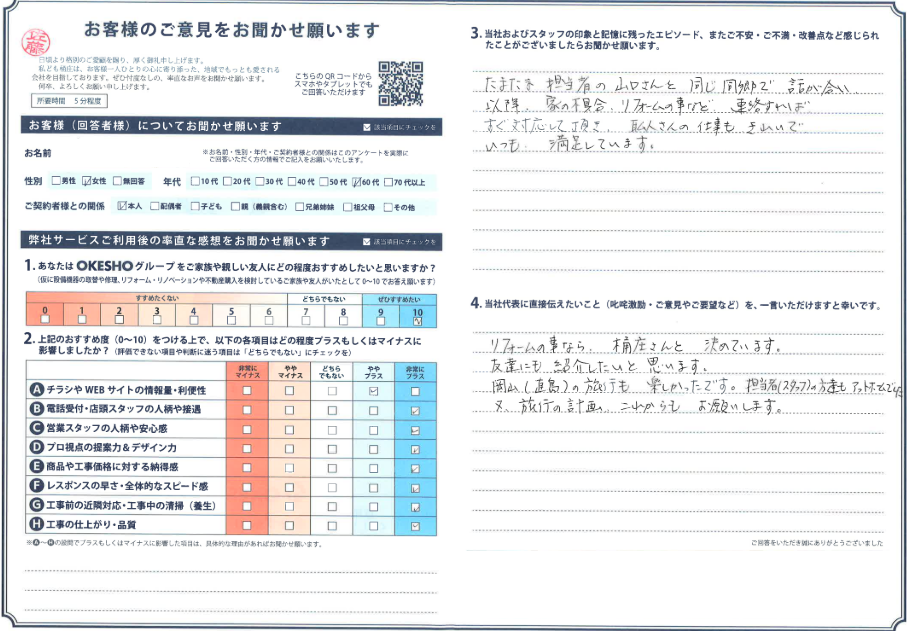 お客様のご意見をお聞かせ願います
日頃より格別のご愛顧を賜り、厚く御礼申し上げます。
私ども桶庄は、お客様一人ひとりの心に寄り添った、地域でもっとも愛される
会社を目指しております。ぜひ忖度なしの、率直なお声をお聞かせ願います。
何卒、よろしくお願い申し上げます。
所要時間 5分程度
こちらのQRコードから
スマホやタブレットでも
ご回答いただけます
お客様（回答者様）についてお聞かせ願います
該当項目にチェックを
お名前
※お名前・性別・年代・ご契約者様との関係はこのアンケートを実際に
ご回答いただく方の情報でご記入をお願いいたします。
性別 男性 女性 無回答 年代 10代 20代 30代 40代 50代 60代 70代以上
ご契約者様との関係 本人 配偶者 子ども 親（義親含む） 兄弟姉妹 祖父母 その他
弊社サービスご利用後の率直な感想をお聞かせ願います
該当項目にチェックを
1.あなたはOKESHOグループをご家族や親しい友人にどの程度おすすめしたいと思いますか？
（仮に設備機器の取替や修理、リフォーム・リノベーションや不動産購入を検討しているご家族や友人がいたとして0～10でお答え願います）
すすめたくない どちらでもない ぜひすすめたい
0 1 2 3 4 5 6 7 8 9 10
2.上記のおすすめ度（0～10）をつける上で、以下の各項目はどの程度プラスもしくはマイナスに
影響しましたか？（評価できない項目や判断に迷う項目は「どちらでもない」にチェックを）
非常に
マイナス
やや
マイナス
どちら
でもない
やや
プラス
非常に
プラス
A チラシやWEBサイトの情報量・利便性
B 電話受付・店頭スタッフの人柄や接遇
C 営業スタッフの人柄や安心感
D プロ視点の提案力＆デザイン力
E 商品や工事価格に対する納得感
F レスポンスの早さ・全体的なスピード感
G 工事前の近隣対応・工事中の清掃（養生）
H 工事の仕上がり・品質
※A～Hの設問でプラスもしくはマイナスに影響した項目は、具体的な理由があればお聞かせ願います。
3.当社およびスタッフの印象と記憶に残ったエピソード、またご不安・ご不満・改善点など感じられ
たことがございましたらお聞かせ願います。
たまたま 担当者の山口さんと 同じ同郷で 話が合い、
以降、家の不具合、リフォームの事など 連絡すれば
すぐ対応して頂き、職人さんの仕事も きれいで
いつも 満足しています。
4.当社代表に直接伝えたいこと（叱咤激励・ご意見やご要望など）を、一言いただけますと幸いです。
リフォームの事なら、桶庄さんと 決めています。
友達にも 紹介したいと 思います。
岡山（直島）の旅行も 楽しかったです。担当者（スタッフ）の方達も アットホームでした
又、旅行の計画、これからも お願いします。
ご回答をいただき誠にありがとうございました